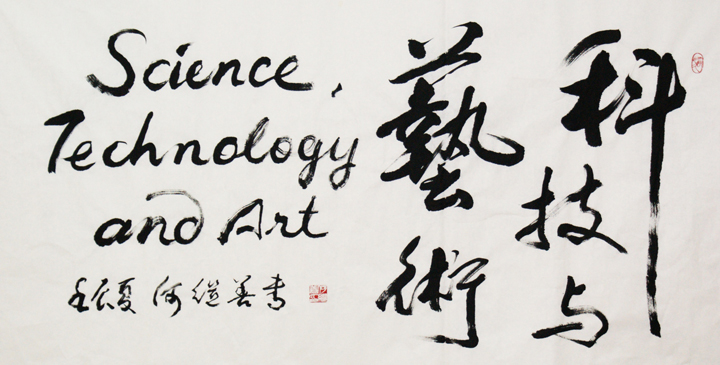 科技与
藝術
Science,
Technology
and Art
壬辰夏 何继善书